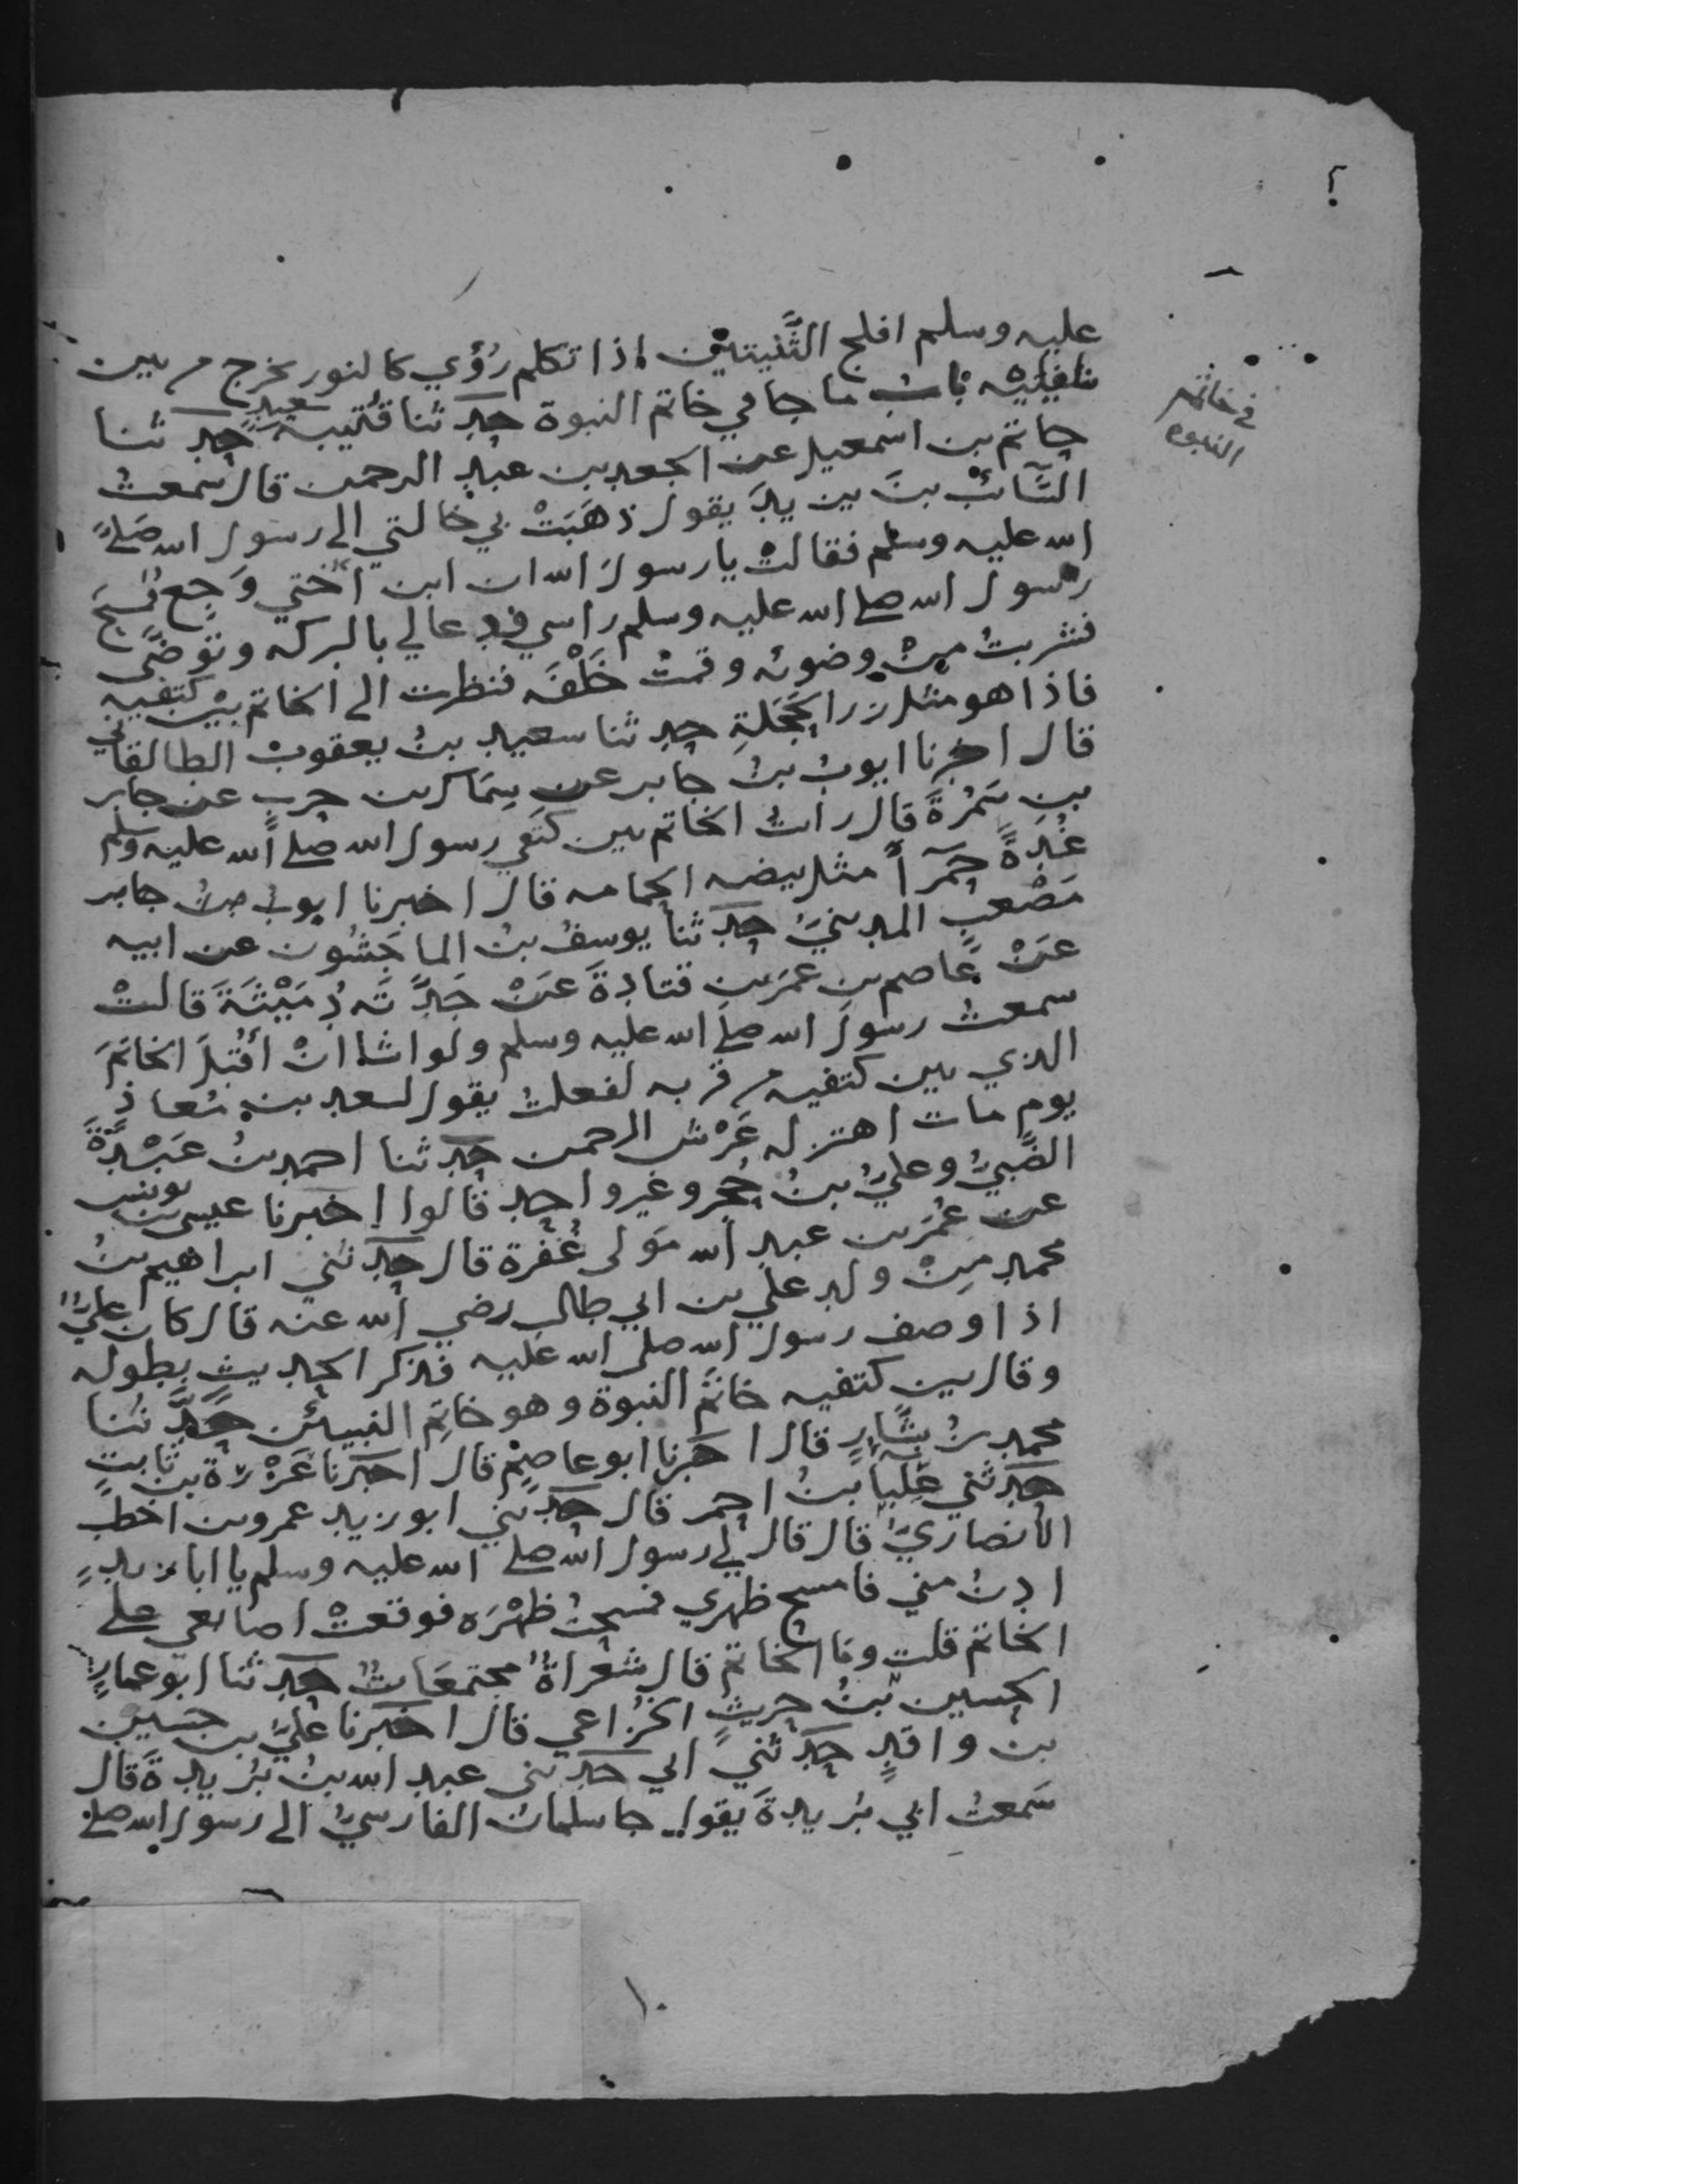 عليه وسلم افلج الثَّنيتين اذا تكلم رُؤي كالنور يخرج من بين
ثناييه باب ما جا في خاتم النبوة حدثنا قتيبه سعيد حدثنا
حاتم بن اسمعيل عن الجعد بن عبد الرحمن قال سمعت
السَّائب بن يزيد يقول ذهَبَتْ بي خالتي الى رسول الله صلى
الله عليه وسلم فقالتْ يا رسول الله ان ابن اختي وَجِع فمسح
رسول الله صلى الله عليه وسلم راسي فدعا لي بالبركه وتوضَّى
فشربتُ مِنْ وضوئه وقمتُ خَلْفَه فنظرت الى الخاتم بين كتفيه
فاذا هو مثل زر الحَجَلَةِ حدثنا سعيد بنُ يعقوب الطالقاني
قال اخبرنا ايوبُ بنُ جابر عن سِمَاك بن حرب عن جابر
بن سَمُرَةَ قال رايتُ الخاتم بين كتفي رسول الله صلى الله عليه وسلم
غُدةً حمرآ مثل بيضه الحمامه قال اخبرنا ايوب بن جابر
مَصْعب المدينيّ حدثنا يوسفُ بنُ الماجَشُون عن ابيه
عَنْ عاصم بن عمر بن قتادةَ عَنْ جَدَّتَه رُمَيْثَةَ قالتْ
سمعتُ رسولَ الله صلى الله عليه وسلم ولو اشا انْ أقَبِّلَ الخاتمَ
الذي بين كتفيه من قربه لفعلتُ يقول لسعد بن مُعاذٍ
يوم مات اهتز له عَرْش الرحمن حدثنا احمد بنُ عَبْدَةَ
الضَّبيُّ وعليُّ بنُ حُجرٍ وغير واحد قالوا اخبرنا عيسى بن يونس
عن عُمَر بن عبد الله مَولى غُفْرة قال حدثني ابراهيم بنُ
محمد مِنْ ولد علي بن ابي طالب رضي الله عنه قال كان عليٌّ
اذا وصف رسول الله صلى الله عليه فذكر الحديث بطوله
وقال بين كتفيه خاتَم النبوة وهو خاتِم النبيئن حدَّثنا
محمد بنُ بشَّارٍ قال اخبرنا ابو عاصِمٍ قال اخبرنا عَزْرَة بن ثابتٍ
حدثني عِلبا بنُ احمر قال حدثني ابو زيد عمرو بن اخطب
الانصاريّ قال قال لي رسول الله صلى الله عليه وسلم يا ابا زيدٍ
ادنُ مني فامسح ظهري فمسحتُ ظهْرَه فوقعتْ اصابعي على
الخاتم قلت وما الخاتم قال شعَراةٌ مجتمعَاتٌ حدثنا ابو عمارٍ
الحسين بنُ حريثٍ الخزاعي قال اخبرنا عليّ بن حسين
بن واقدٍ حدثني ابي حدثني عبد الله بنُ بُريدةَ قال
سَمعتُ ابي بُريدةَ يقول جا سلمان الفارسيُّ الى رسول الله صلى
في خاتم
النبوه
١٠